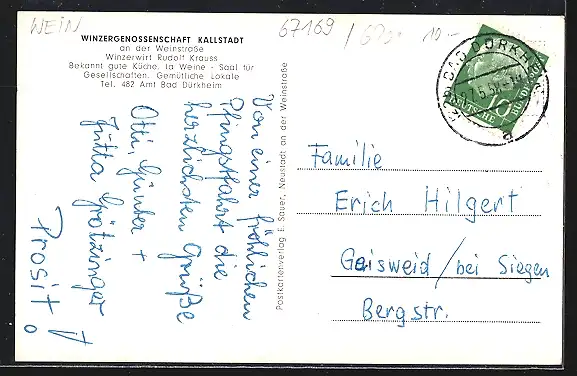 WEIN
67169
10.-
WINZERGENOSSENSCHAFT KALLSTADT
an der Weinstraße
Winzerwirt Rudolf Krauss
Bekannt gute Küche, Ia Weine - Saal für
Gesellschaften. Gemütliche Lokale
Tel. 482 Amt Bad Dürkheim
Von einer fröhlichen
Pfingstfahrt die
herzlichsten Grüße
Otti, Günter +
Jutta Grötzinger
Prosit!
Postkartenverlag E. Sauer, Neustadt an der Weinstraße
BAD DÜRKHEIM
DEUTSCHE BUNDESPOST
10
Familie
Erich Hilgert
Geisweid/bei Siegen
Bergstr.